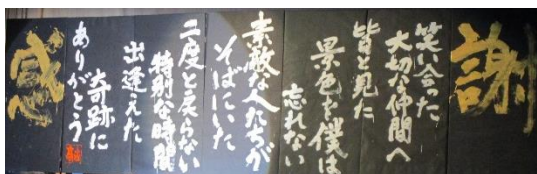 謝
笑い合った
大切な仲間へ
皆と見た
景色を僕は
忘れない
素敵な人たちが
そばにいた
二度と戻らない
特別な時間
出逢えた
奇跡に
ありがとう
感